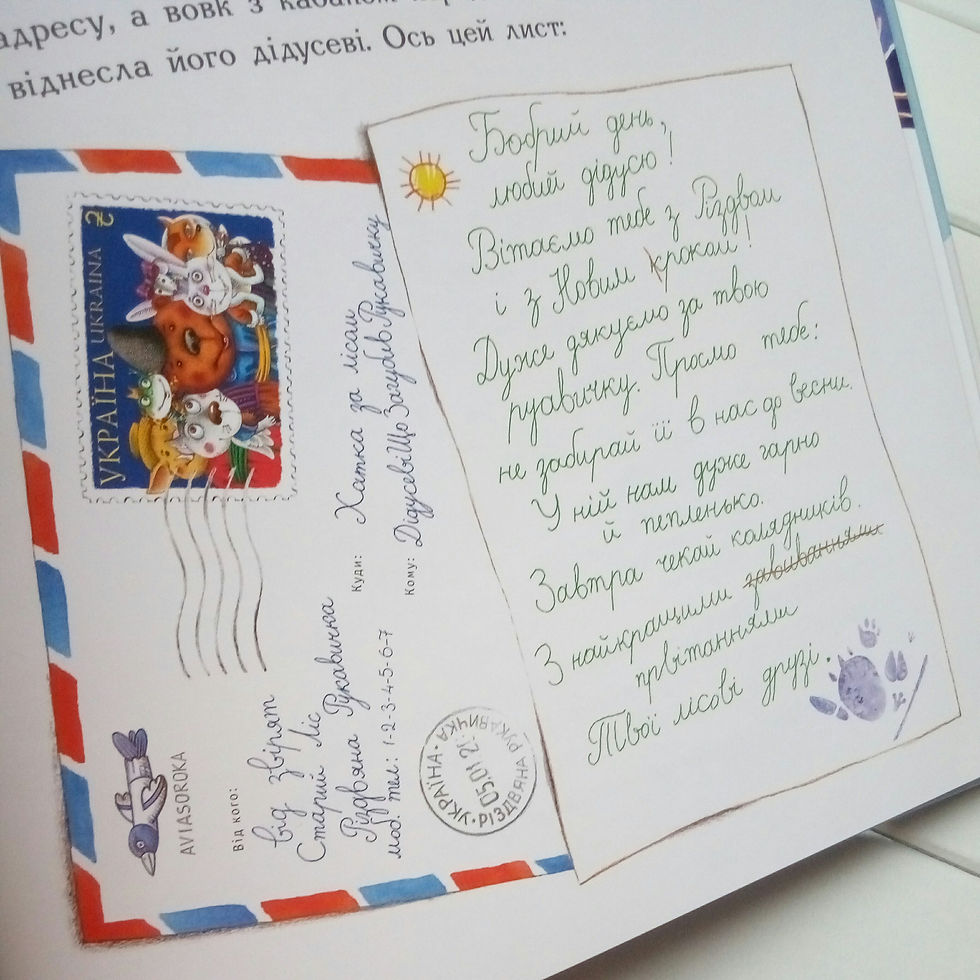 адресу, а вовк з кабаном
віднесла його дідусеві. Ось цей лист:
УКРАЇНА UKRAINA ₴
Куди: Хатка за лісом
Кому: Дідусеві Що Загубив Рукавичку
AVIASOROKA
Від кого:
від звірят
Старий Ліс
Різдвяна Рукавичка
моб. тел: 1-2-3-4-5-6-7
УКРАЇНА · РІЗДВЯНА РУКАВИЧКА ·
Бобрий день,
любий дідусю!
Вітаємо тебе з Різдвом
і з Новим кроком!
Дуже дякуємо за твою
руавичку. Просмо тебе:
не забирай її в нас до весни.
У ній нам дуже гарно
й пепленько.
Завтра чекай колядників.
З найкращими завиваннями
првітаннями
Твої лісові друзі.